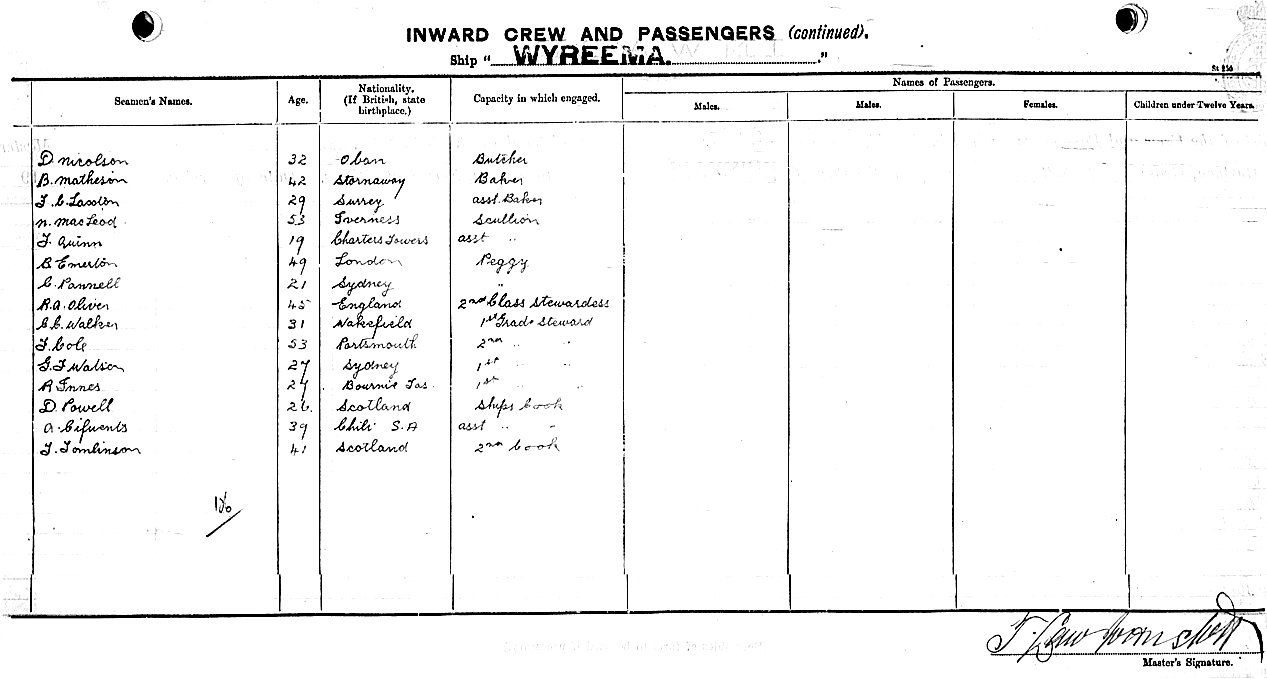 INWARD CREW AND PASSENGERS (continued).
Ship "WYREEMA."
Seamen's Names. Age. Nationality. (If British, state birthplace.) Capacity in which engaged. Names of Passengers.
Males. Males. Females. Children under Twelve Years.
D. Nicolson 32 Oban Butcher
B. Matheson 42 Stornaway Baker
29 Surrey asst. Baker
N. MacLeod 53 Iverness Scullion
J. Quinn 19 Charters Towers asst "
B Emerton 49 London Peggy
C. Pannell 21 Sydney "
R.A. Oliver 45 England 2nd Class Stewardess
C.C. Walker 31 Wakefield 1st Grade Steward
J. Cole 53 Portsmouth 2nd " "
G.F Watson 27 Sydney 1st " "
R Innes 27 Bournie Tas. 1st " "
D. Powell 26. Scotland Ships Cook
A. Cifuents 39 Chili S.A asst " "
J. Tomlinson 41 Scotland 2nd Cook
Master's Signature.